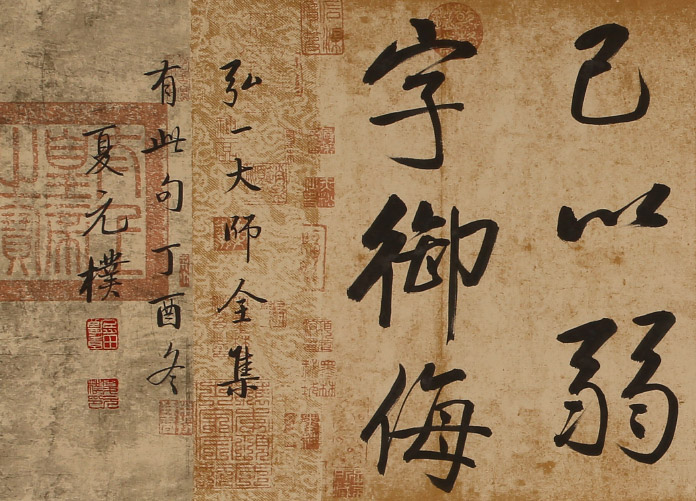 己以弱
字御侮
弘一大师全集
有此句丁酉冬
夏元樸